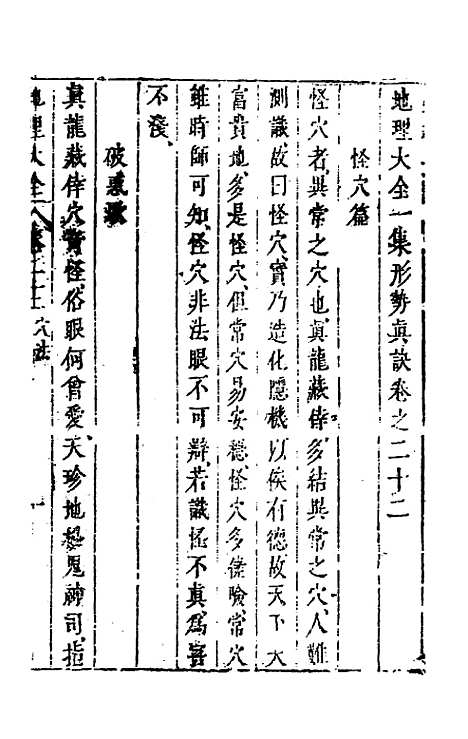 地理大全一集形勢真訣卷之二十二
怪穴篇
怪穴者、異常之穴也、眞龍藏倖、多結異常之穴、人難
測識、故曰怪穴、實乃造化隱機、以俟有德、故天下大
富貴地、多是怪穴、但常穴易安穩、怪穴多儉險、常穴
雖時師可知、怪穴非法眼不可辯、若識怪不真、爲害
不淺、
破惑歌
真龍藏倖穴奇怪、俗眼何曾愛、天珍地秘鬼神司、指
地理大全 穴法